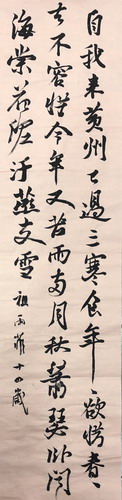 自我来黄州已過三寒食年〻欲惜春〻
去不容惜今年又苦雨两月秋蕭瑟卧闻
海棠花泥汙燕支雪
祖雨 十四歲